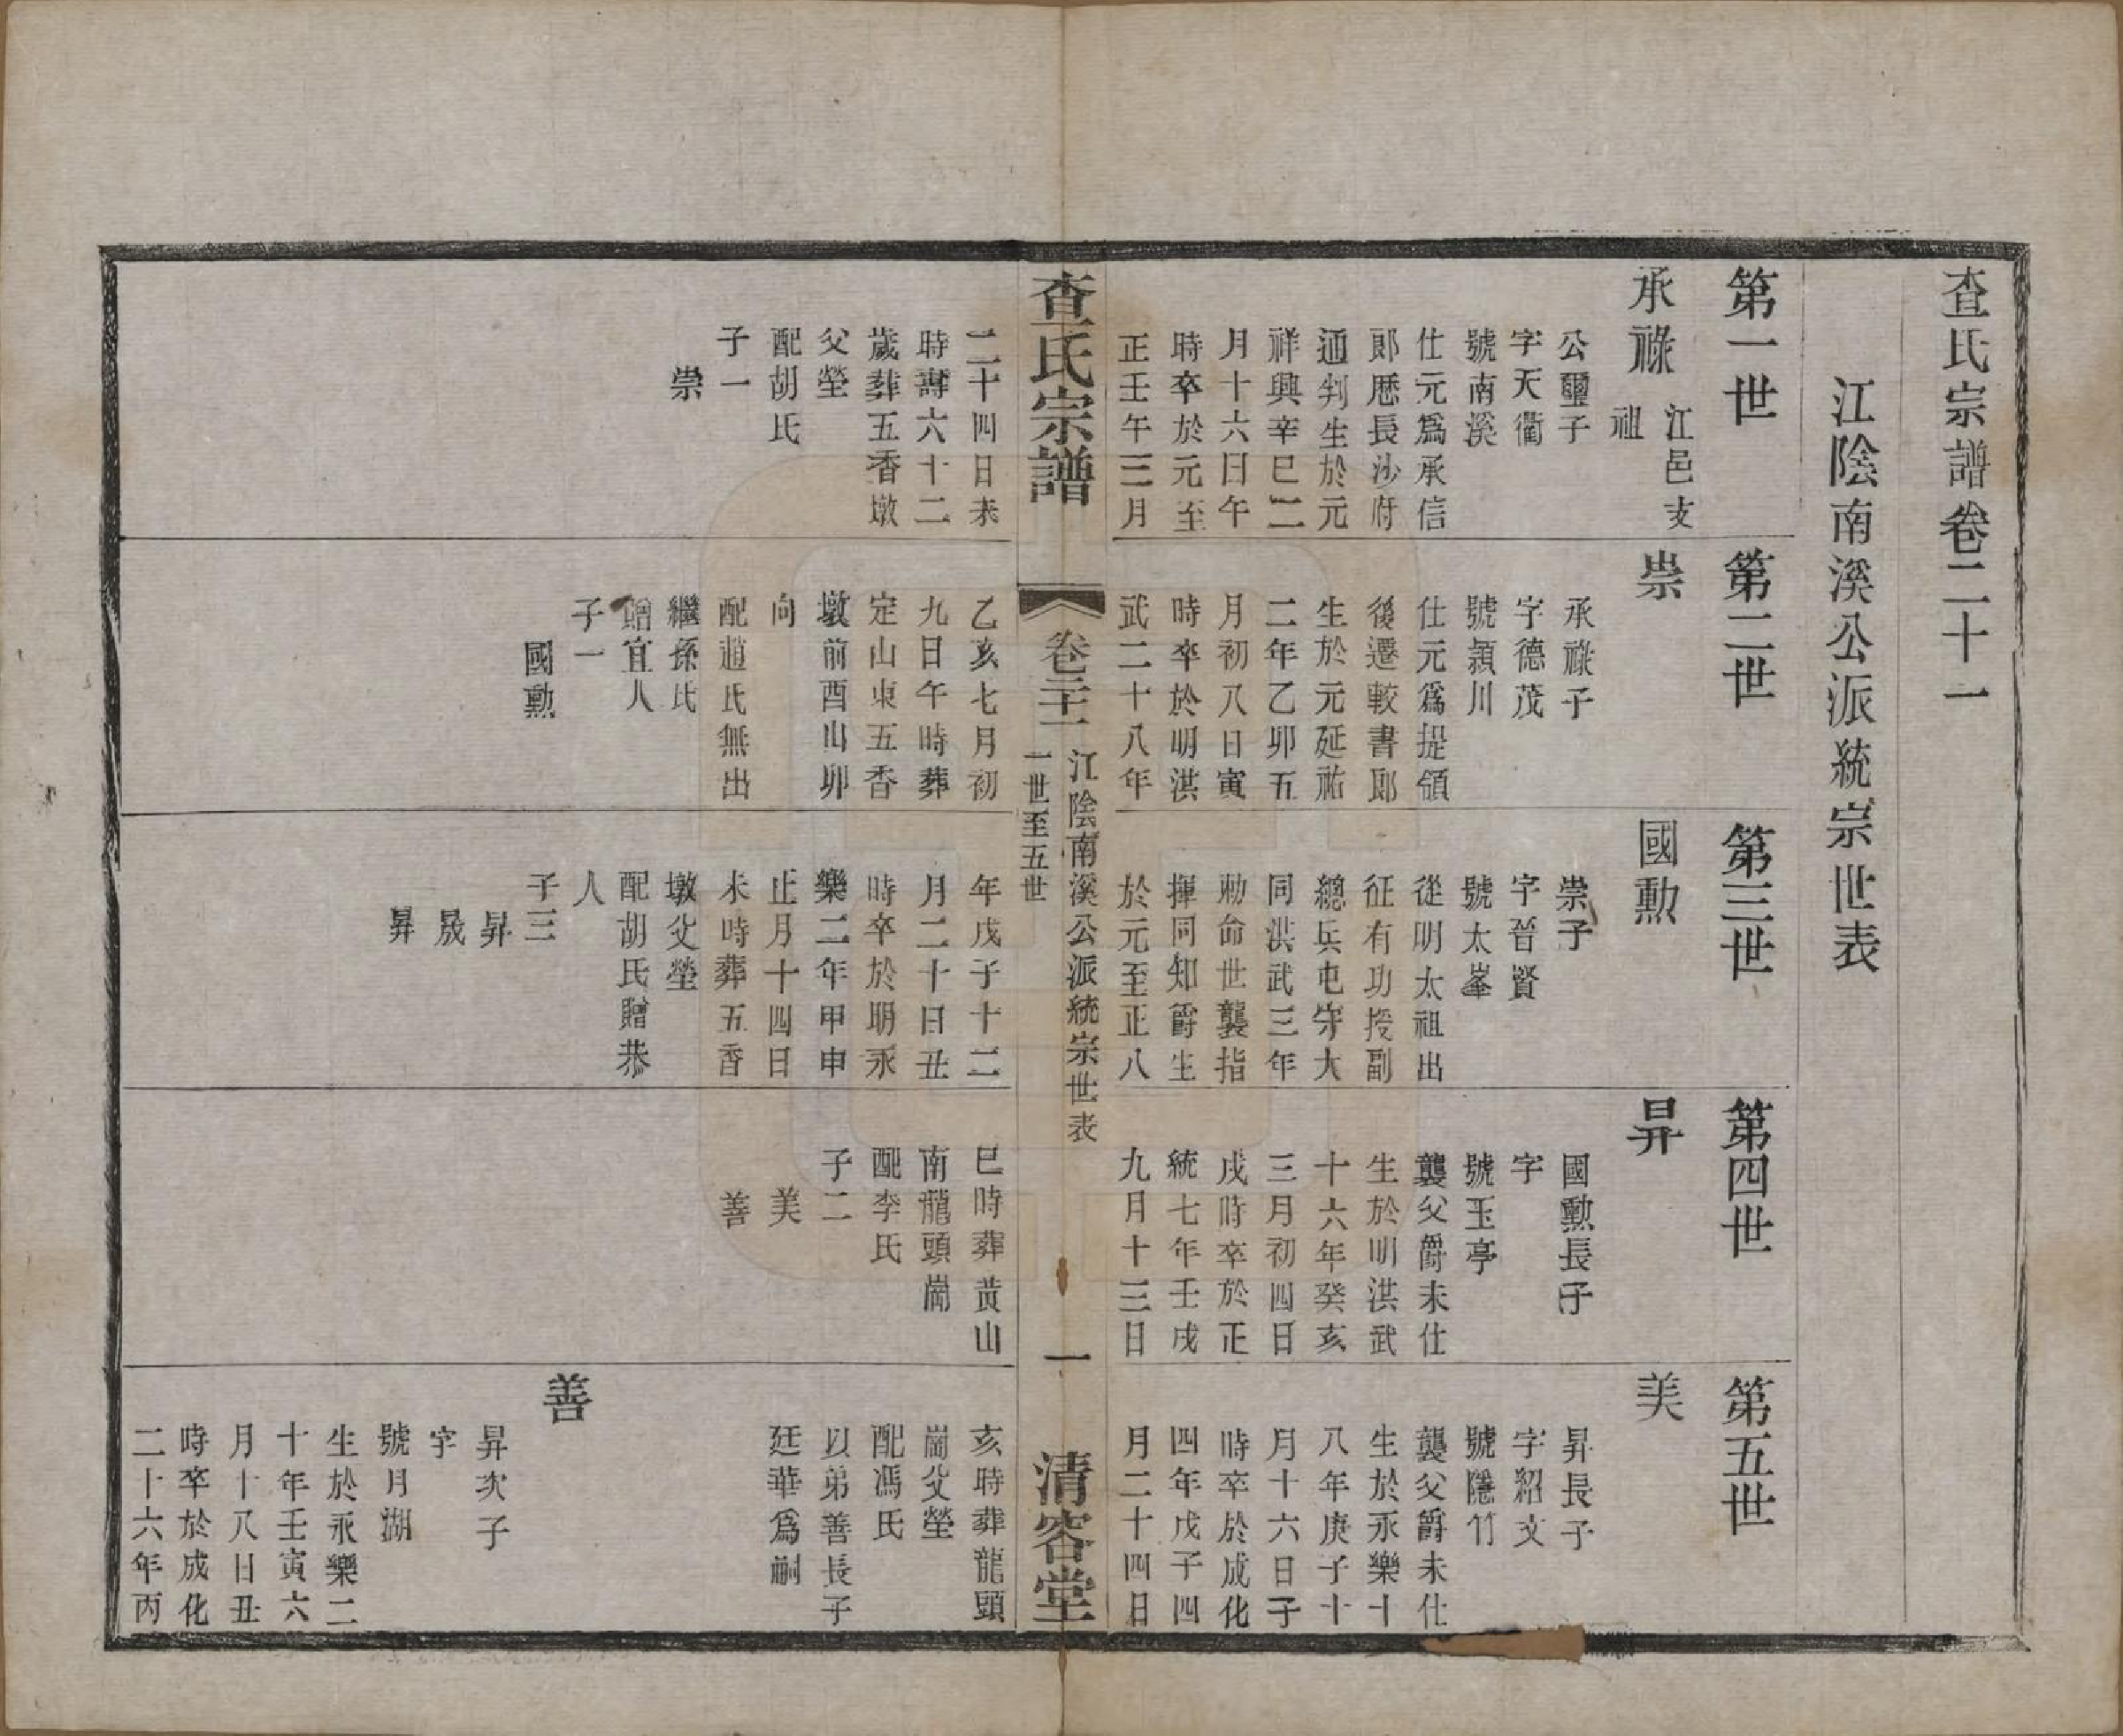 查氏宗譜卷二十一
江陰南溪公派統宗世表
第一世
承祿
江邑支
祖
公璽子
字天衢
號南溪
仕元爲承信
郞歷長沙府
通判生於元
祥興辛巳二
月十六日午
時卒於元至
正壬午三月
二十四日未
時壽六十二
歲葬五香墩
父塋
配胡氏
子一
崇
第二世
崇
承祿子
字德茂
號潁川
仕元爲提領
後遷較書郞
生於元延祐
二年乙卯五
月初八日寅
時卒於明洪
武二十八年
乙亥七月初
九日午時葬
定山東五香
墩前酉山卯
向
配趙氏無出
繼孫氏
贈宜人
子一
國勳
第三世
國勳
崇子
字晉賢
號太峯
從明太祖出
征有功授副
總兵屯守大
同洪武三年
勅命世襲指
揮同知爵生
於元至正八
年戊子十二
月二十日丑
時卒於明永
樂二年甲申
正月十四日
未時葬五香
墩父塋
配胡氏贈恭
人
子三
昇
晟
昇
第四世
昇
國勳長子
字
號玉亭
襲父爵未仕
生於明洪武
十六年癸亥
三月初四日
戌時卒於正
統七年壬戌
九月十三日
巳時葬黃山
南龍頭崗
配李氏
子二
美
善
第五世
美
昇長子
字紹文
號隱竹
襲父爵未仕
生於永樂十
八年庚子十
月十六日子
時卒於成化
四年戊子四
月二十四日
亥時葬龍頭
崗父塋
配馮氏
以弟善長子
廷華爲嗣
善
昇次子
字
號月湖
生於永樂二
十年壬寅六
月十八日丑
時卒於成化
二十六年丙
查氏宗譜
卷二十一
江陰南溪公派統宗世表
一世至五世
一
清容堂